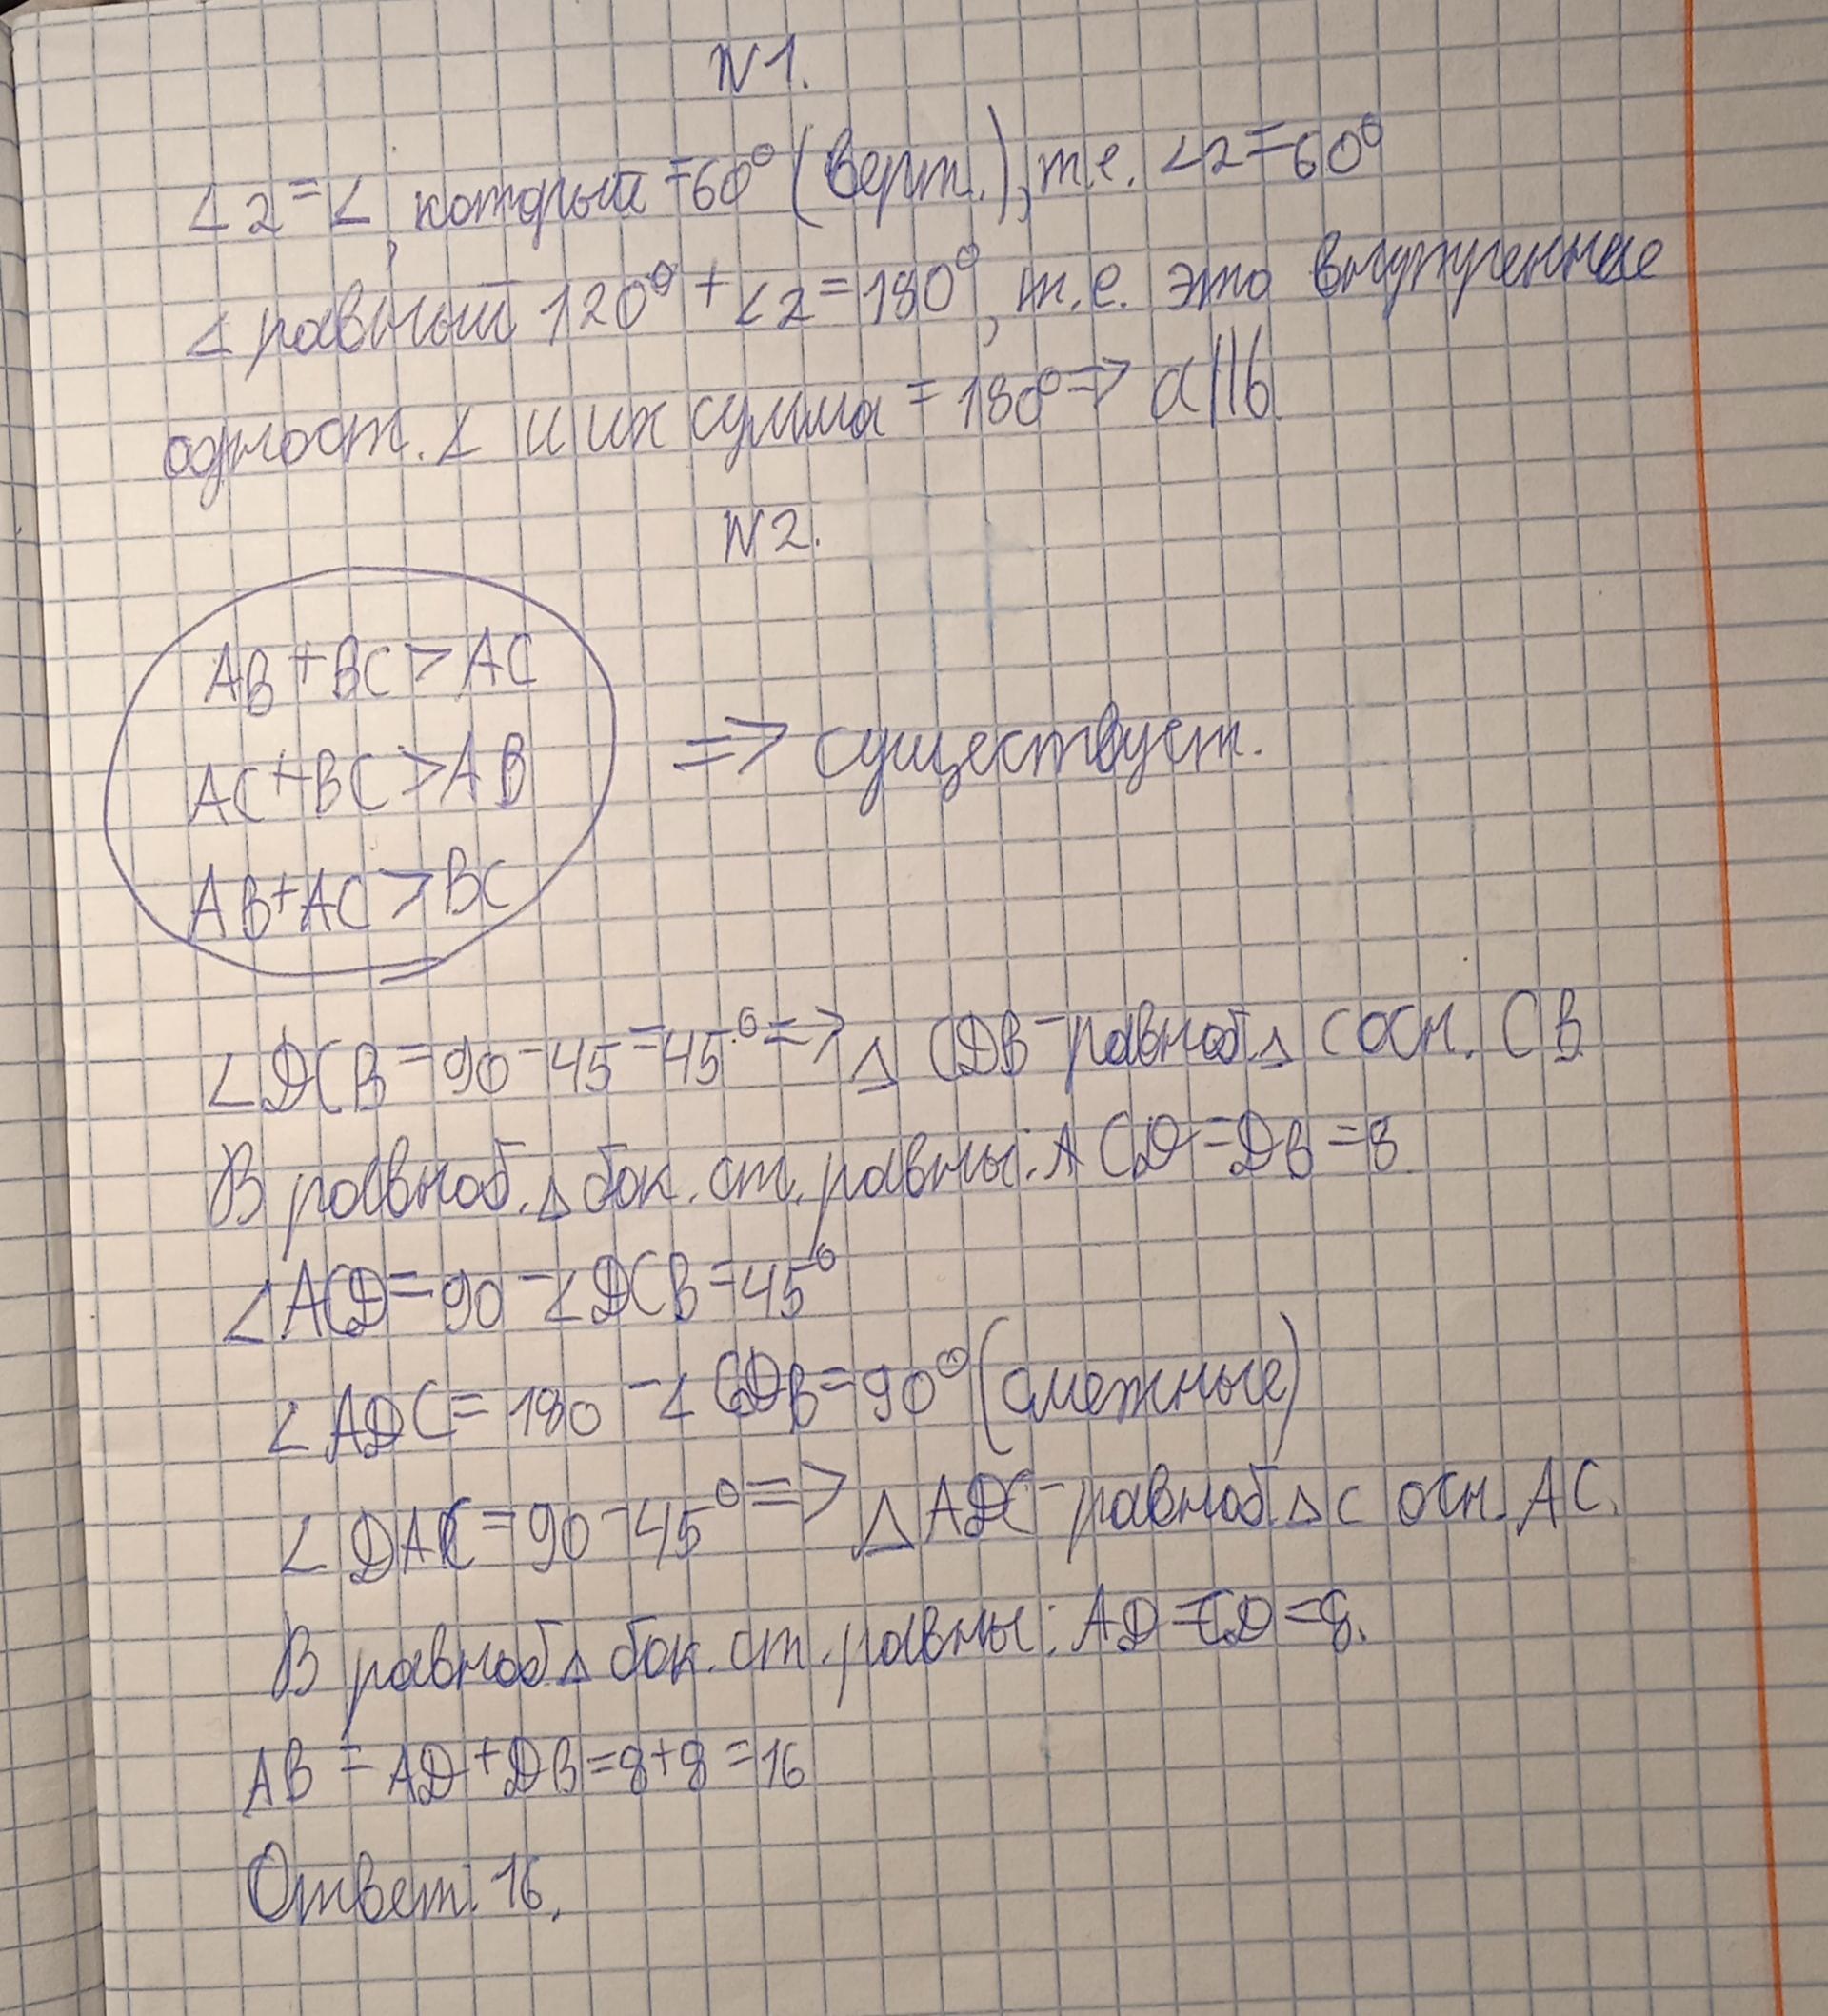 N1.
∠2=∠, который =60° (верт.), т.е. ∠2=60°
∠ равный 120°+∠2=180°, т.е. это внутренние
одност. ∠ и их сумма =180° => a||b
N2.
AB+BC>AC
AC+BC>AB => существует.
AB+AC>BC
∠DCB=90-45=45° => △ CDB-равноб.△ с осн. CB.
В равноб.△ бок. ст. равны: CD=DB=8.
∠ACD=90-∠DCB=45°
∠ADC=180-∠CDB=90° (смежные)
∠DAC=90-45° => △ADC-равноб.△ с осн. AC.
В равноб.△ бок. ст. равны: AD=CD=8.
AB=AD+DB=8+8=16
Ответ: 16.